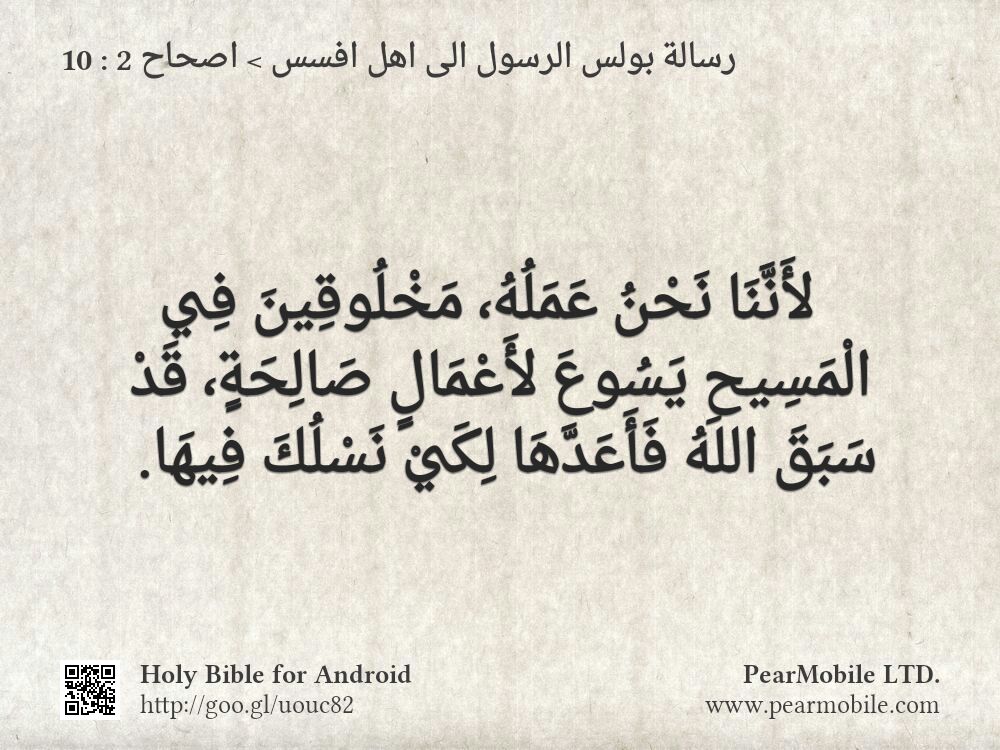 رسالة بولس الرسول الى اهل افسس > اصحاح 2 : 10
لأَنَّنَا نَحْنُ عَمَلُهُ، مَخْلُوقِينَ فِي
الْمَسِيحِ يَسُوعَ لأَعْمَال صَالِحَةٍ، قَدْ
سَبَقَ اللهُ فَأَعَدَّهَا لِكَيْ نَسْلُكَ فِيهَا.
Holy Bible for Android
http://goo.gl/uouc82
PearMobile LTD.
www.pearmobile.com